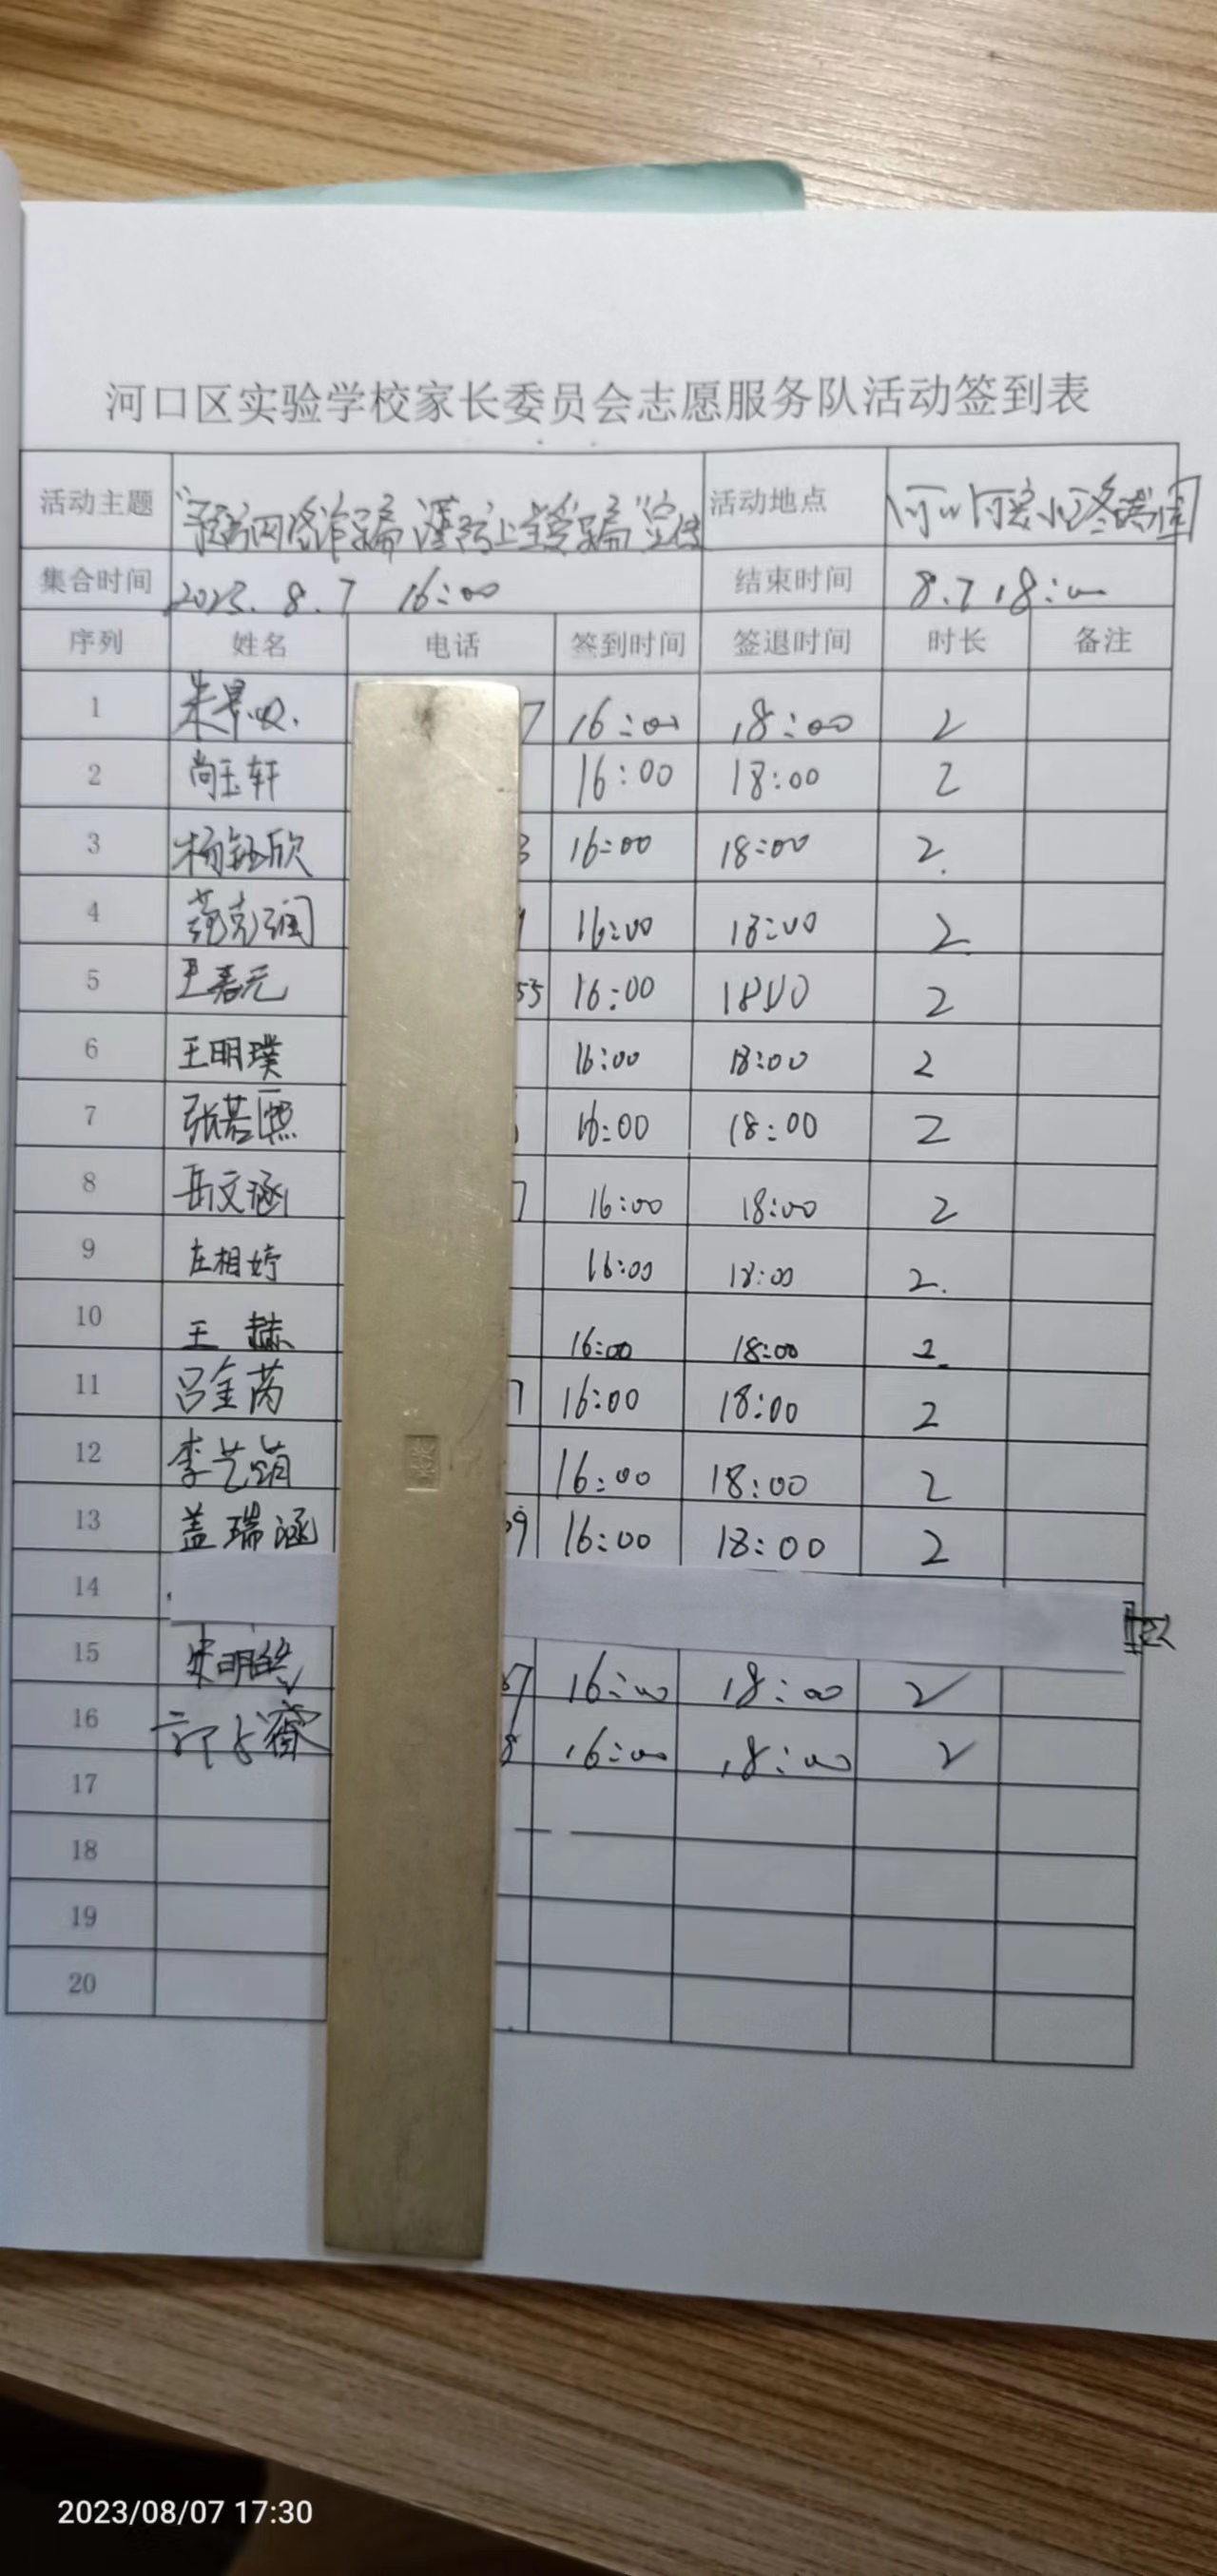 河口区实验学校家长委员会志愿服务队活动签到表
活动主题 "预防网络诈骗 谨防上当受骗"宣传 活动地点
集合时间 2023.8.7 16:00 结束时间 8.7 18:00
序列 姓名 电话 签到时间 签退时间 时长 备注
1 7 16:00 18:00 2
2 尚玉轩 16:00 18:00 2
3 杨钰欣 3 16:00 18:00 2.
4 范克润 16:00 18:00 2.
5 王嘉元 55 16:00 18:00 2
6 王明璞 16:00 18:00 2
7 张若熙 16:00 18:00 2
8 岳文涵 7 16:00 18:00 2
9 左相婷 16:00 18:00 2.
10 王赫 16:00 18:00 2.
11 吕金芮 7 16:00 18:00 2
12 李艺 16:00 18:00 2
13 盖瑞涵 99 16:00 18:00 2
14
15 宋明 57 16:00 18:00 2
16 8 16:00 18:00 2
17
18
19
20
2023/08/07 17:30